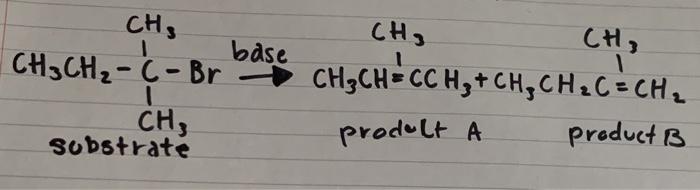 CH3 CH3 CH3
CH3CH2-C-Br base CH3CH=CCH3+CH3CH2C=CH2
CH3
substrate product A product B